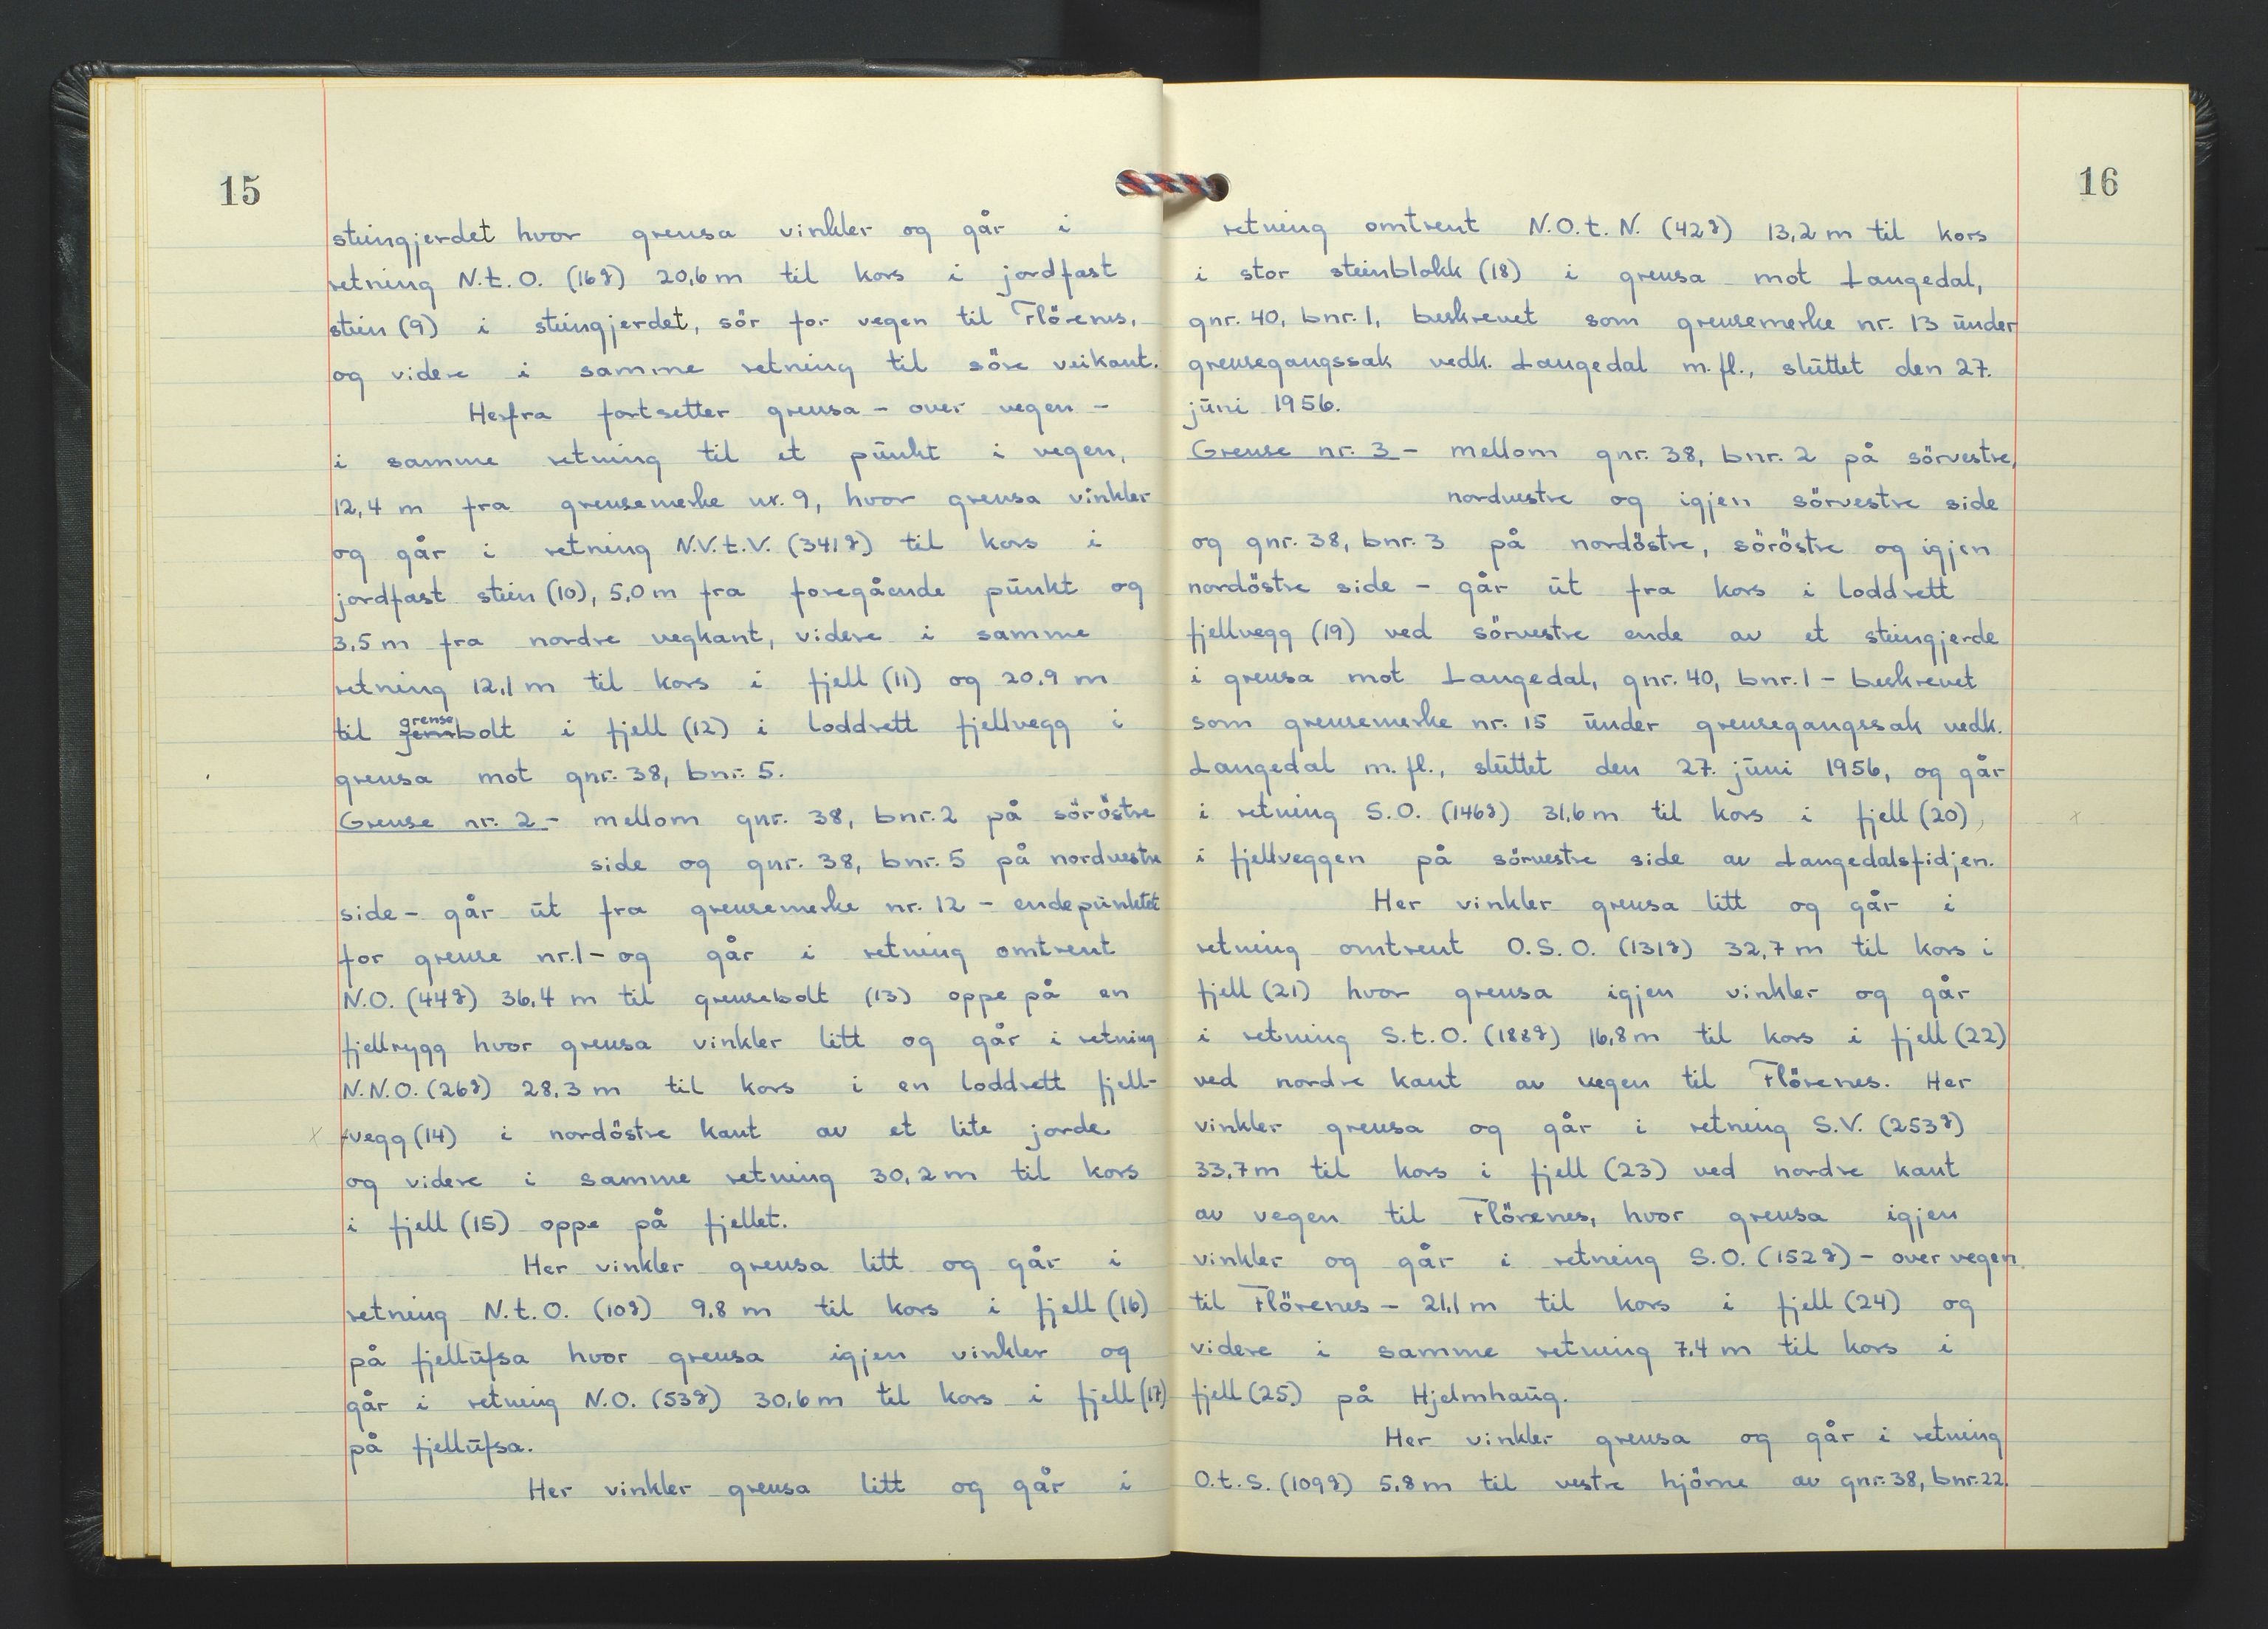 15
steingjerdet hvor grensa vinkler og går i
retning N.t.O. (16g) 20,6 m til kors i jordfast
stein (9) i steingjerdet, sör for vegen til Flörenes,
og videre i samme retning til söre veikant.
Herfra fortsetter grensa - over vegen -
i samme retning til et punkt i vegen,
12,4 m fra grensemerke nr. 9, hvor grensa vinkler
og går i retning N.V.t.V. (341g) til kors i
jordfast stein (10), 5,0 m fra foregående punkt og
3,5 m fra nordre vegkant, videre i samme
retning 12,1 m til kors i fjell (11) og 20,9 m
til grensebolt i fjell (12) i loddrett fjellvegg i
grensa mot gnr. 38, bnr. 5.
Grense nr. 2 - mellom gnr. 38, bnr. 2 på söröstre
side og gnr. 38, bnr. 5 på nordvestre
side - går ut fra grensemerke nr. 12 - endepunktet
for grense nr. 1 - og går i retning omtrent
N.O. (44g) 36,4 m til grensebolt (13) oppe på en
fjellrygg hvor grensa vinkler litt og går i retning
N.N.O. (26g) 28,3 m til kors i en loddrett fjell-
vegg (14) i nordöstre kant av et lite jorde
og videre i samme retning 30,2 m til kors
i fjell (15) oppe på fjellet.
Her vinkler grensa litt og går i
retning N.t.O. (10g) 9,8 m til kors i fjell (16)
på fjellufsa hvor grensa igjen vinkler og
går i retning N.O. (53g) 30,6 m til kors i fjell (17)
på fjellufsa.
Her vinkler grensa litt og går i
16
retning omtrent N.O.t.N. (42g) 13,2 m til kors
i stor steinblokk (18) i grensa mot Langedal,
gnr. 40, bnr. 1, beskrevet som grensemerke nr. 13 under
grensegangssak vedk. Langedal m.fl., sluttet den 27.
juni 1956.
Grense nr. 3 - mellom gnr. 38, bnr. 2 på sörvestre,
nordvestre og igjen sörvestre side
og gnr. 38, bnr. 3 på nordöstre, söröstre og igjen
nordöstre side - går ut fra kors i loddrett
fjellvegg (19) ved sörvestre ende av et steingjerde
i grensa mot Langedal, gnr. 40, bnr. 1 - beskrevet
som grensemerke nr. 15 under grensegangssak vedk.
Langedal m.fl., sluttet den 27. juni 1956, og går
i retning S.O. (146g) 31,6 m til kors i fjell (20),
i fjellveggen på sörvestre side av Langedalsfidjen.
Her vinkler grensa litt og går i
retning omtrent O.S.O. (131g) 32,7 m til kors i
fjell (21) hvor grensa igjen vinkler og går
i retning S.t.O. (188g) 16,8 m til kors i fjell (22)
ved nordre kant av vegen til Flörenes. Her
vinkler grensa og går i retning S.V. (253g)
33,7 m til kors i fjell (23) ved nordre kant
av vegen til Flörenes, hvor grensa igjen
vinkler og går i retning S.O. (152g) - over vegen
til Flörenes - 21,1 m til kors i fjell (24) og
videre i samme retning 7,4 m til kors i
fjell (25) på Hjelmhaug.
Her vinkler grensa og går i retning
O.t.S. (109g) 5,8 m til vestre hjörne av gnr. 38, bnr. 22.